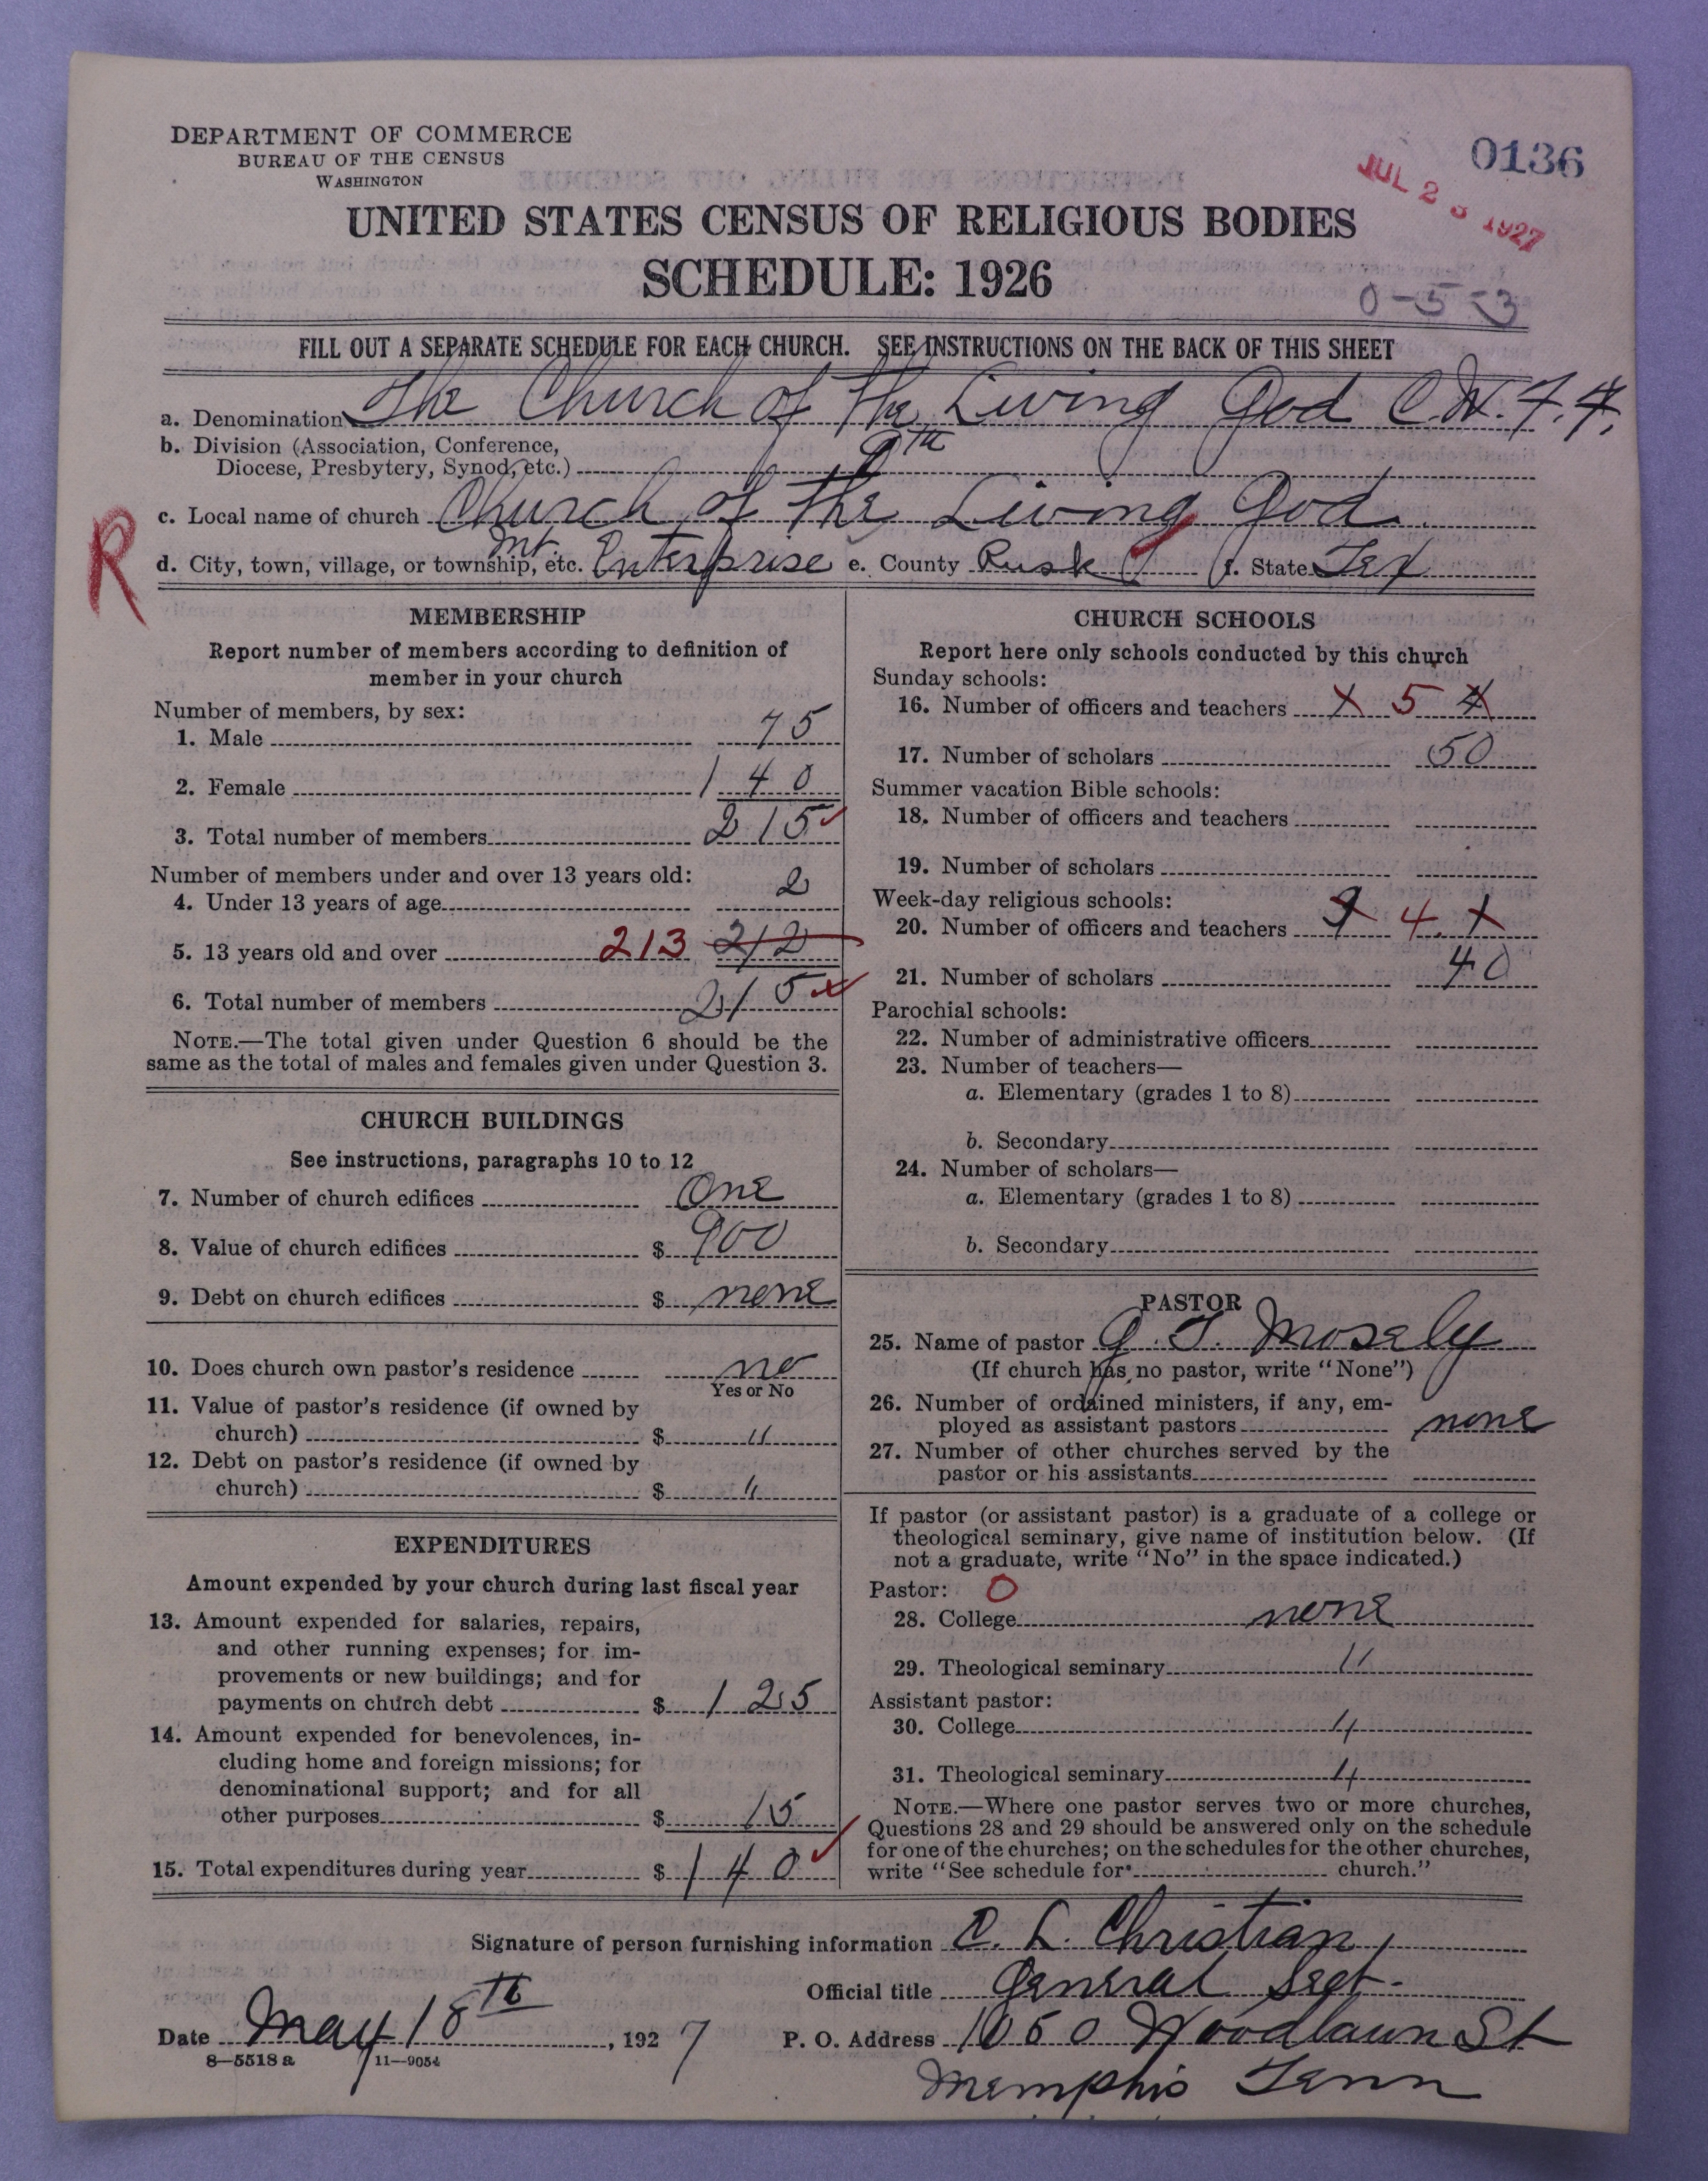 DEPARTMENT OF COMMERCE
BUREAU OF THE CENSUS
WASHINGTON
0136
JUL 2 1927
UNITED STATES CENSUS OF RELIGIOUS BODIES
SCHEDULE: 1926
0-5-3
FILL OUT A SEPARATE SCHEDULE FOR EACH CHURCH. SEE INSTRUCTIONS ON THE BACK OF THIS SHEET
a. Denomination The Church of The Living God C.W.F.F.
b. Division (Association, Conference,
Diocese, Presbytery, Synod, etc.) 9th
c. Local name of church Church of The Living God
R
d. City, town, village, or township, etc. Mt. Enterprise e. County Rusk f. State Tex
MEMBERSHIP
Report number of members according to definition of
member in your church
Number of members, by sex:
1. Male 75
2. Female 140
3. Total number of members 215
Number of members under and over 13 years old:
4. Under 13 years of age 2
5. 13 years old and over 213 212
6. Total number of members 215
NOTE.—The total given under Question 6 should be the
same as the total of males and females given under Question 3.
CHURCH BUILDINGS
See instructions, paragraphs 10 to 12
7. Number of church edifices One
8. Value of church edifices $ 900
9. Debt on church edifices $ none
10. Does church own pastor's residence no
Yes or No
11. Value of pastor's residence (if owned by
church) $ "
12. Debt on pastor's residence (if owned by
church) $ "
EXPENDITURES
Amount expended by your church during last fiscal year
13. Amount expended for salaries, repairs,
and other running expenses; for im-
provements or new buildings; and for
payments on church debt $ 125
14. Amount expended for benevolences, in-
cluding home and foreign missions; for
denominational support; and for all
other purposes $ 15
15. Total expenditures during year $ 140
CHURCH SCHOOLS
Report here only schools conducted by this church
Sunday schools:
16. Number of officers and teachers X 5 4
17. Number of scholars 50
Summer vacation Bible schools:
18. Number of officers and teachers
19. Number of scholars
Week-day religious schools:
20. Number of officers and teachers 4
21. Number of scholars 40
Parochial schools:
22. Number of administrative officers
23. Number of teachers—
a. Elementary (grades 1 to 8)
b. Secondary
24. Number of scholars—
a. Elementary (grades 1 to 8)
b. Secondary
PASTOR
25. Name of pastor G. T. Mosely
(If church has no pastor, write "None")
26. Number of ordained ministers, if any, em-
ployed as assistant pastors none
27. Number of other churches served by the
pastor or his assistants
If pastor (or assistant pastor) is a graduate of a college or
theological seminary, give name of institution below. (If
not a graduate, write "No" in the space indicated.)
Pastor: O
28. College none
29. Theological seminary "
Assistant pastor:
30. College "
31. Theological seminary "
NOTE.—Where one pastor serves two or more churches,
Questions 28 and 29 should be answered only on the schedule
for one of the churches; on the schedules for the other churches,
write "See schedule for church."
Signature of person furnishing information C. L. Christian
Official title General Sect.
Date May 18th, 1927 P. O. Address 1050 Woodlawn St
8—5518 a 11—9054
Memphis Tenn